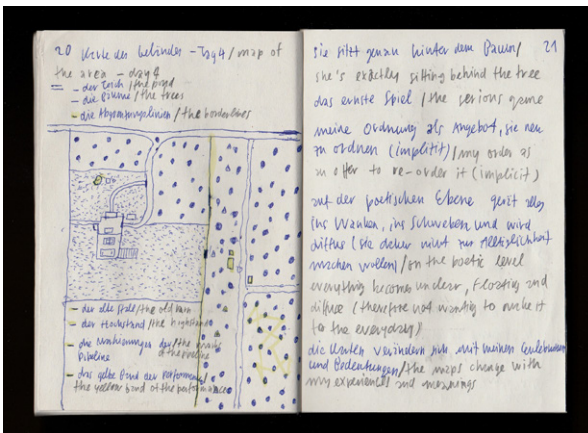 20 Karte des Geländes - Tag 4 / map of
the area - day 4
- der Teich / the pond
- die Bäume / the trees
- die Abgrenzungslinien / the borderlines
- der alte Stall / the old barn
- der Hochstand / the highstand
- die Markierungen der / the marks
Pipeline of the pipeline
- das gelbe Band der Performance /
the yellow band of the performance
21
sie sitzt genau hinter dem Baum /
she's exactly sitting behind the tree
das ernste Spiel / the serious game
meine Ordnung als Angebot, sie neu
zu ordnen (implizit) / my order as
an offer to re-order it (implicit)
auf der poetischen Ebene gerät alles
ins Wanken, ins Schweben und wird
diffus (sie daher nicht zur Alltäglichkeit
machen wollen) / on the poetic level
everything becomes unclear, floating and
diffuse (therefore not wanting to make it
for the everyday)
die Karten verändern sich mit meinen Erlebnissen
und Bedeutungen / the maps change with
my experiences and meanings